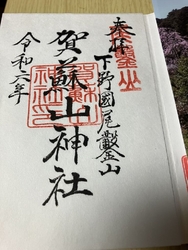 奉拝
下野國尾鑿山
賀蘇山神社
令和六年